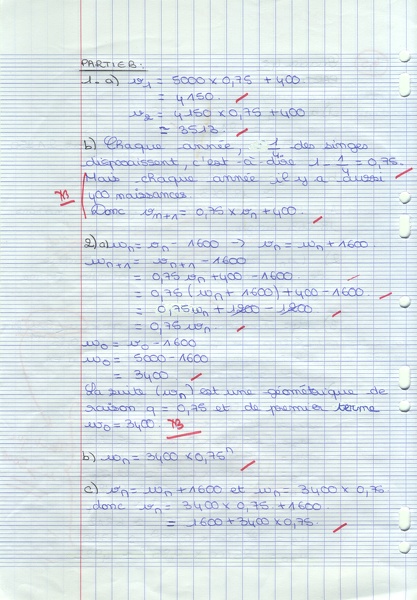 PARTIE B:
1-a) v₁ = 5000 × 0,75 + 400
= 4150.
v₂ = 4150 × 0,75 + 400
= 3513.
b) Chaque année, 1/4 des singes
disparaissent, c'est-à-dire 1 - 1/4 = 0,75.
Mais chaque année il y a aussi
400 naissances.
Donc vₙ₊₁ = 0,75 × vₙ + 400.
2) a) wₙ = vₙ - 1600 → vₙ = wₙ + 1600
wₙ₊₁ = vₙ₊₁ - 1600
= 0,75 vₙ + 400 - 1600.
= 0,75 (wₙ + 1600) + 400 - 1600.
= 0,75 wₙ + 1200 - 1200
= 0,75 wₙ.
w₀ = v₀ - 1600
w₀ = 5000 - 1600
= 3400
La suite (wₙ) est une géométrique de
raison q = 0,75 et de premier terme
w₀ = 3400. TB
b) wₙ = 3400 × 0,75ⁿ
c) vₙ = wₙ + 1600 et wₙ = 3400 × 0,75
donc vₙ = 3400 × 0,75 + 1600.
= 1600 + 3400 × 0,75.